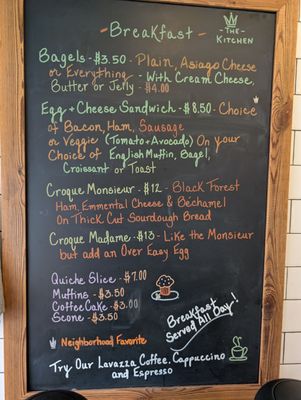 THE
- Breakfast -
KITCHEN
Bagels - $3.50 - Plain, Asiago Cheese
or Everything - With Cream Cheese,
Butter or Jelly - $4.00
Egg + Cheese Sandwich - $8.50 - Choice
of Bacon, Ham, Sausage
or Veggie (Tomato + Avocado) On your
Choice of English Muffin, Bagel,
Croissant or Toast
Croque Monsieur - $12 - Black Forest
Ham, Emmental Cheese & Béchamel
On Thick Cut Sourdough Bread
Croque Madame - $13 - Like the Monsieur
but add an Over Easy Egg
Quiche Slice - $7.00
Muffins - $3.50
Coffee Cake - $3.00
Scone - $3.50
Breakfast
Served All Day!
Neighborhood Favorite
Try Our Lavazza Coffee, Cappuccino
and Espresso